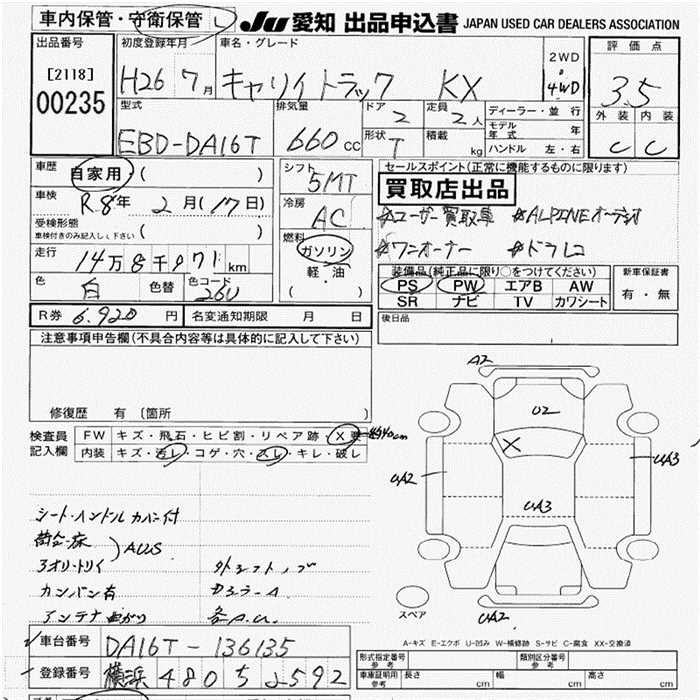 車内保管・守衛保管 し JU 愛知 出品申込書 JAPAN USED CAR DEALERS ASSOCIATION
出品番号 [2118] 00235
初度登録年月 H26 7月
車名・グレード キャリイトラック KX
2WD ・ 4WD
評価点 3.5
外装 C 内装 C
型式 EBD-DA16T
排気量 660cc
ドア 2 定員 2人
形状 T 積載 kg
ディーラー・並行
モデル年式 年
ハンドル 左・右
車歴 自家用・( )
車検 R8年 2月(17日)
受検形態 車検付きのみ記入して下さい ( )
走行 14万8千971km
色 白 色替 色コード 26U
シフト 5MT
冷房 AC
燃料 ガソリン 軽・油 ( )
セールスポイント(正常に機能するものに限ります)
買取店出品
☆ユーザー買取車 ☆ALPINEオーディオ
☆ワンオーナー ☆ドラレコ
装備品(純正品に限り○をつけてください)
PS PW エアB AW
SR ナビ TV カワシート
新車保証書 有・無
R券 6,920円 名変通知期限 月 日
後日品
注意事項申告欄(不具合内容等は具体的に記入して下さい)
修復歴 有 〔箇所 〕
検査員記入欄
FW キズ・飛石・ヒビ割・リペア跡・X要 40cm
内装 キズ・汚レ・コゲ・穴・スレ・キレ・破レ
シート・ハンドルカバー付
AUS
カンバン有
アンテナ曲がり
A2
U2
X
UA2
UA3
UA3
UA2
スペア
A-キズ E-エクボ U-凹み W-補修跡 S-サビ C-腐食 XX-交換済
車台番号 DA16T-136135
登録番号 横浜 480 そ 2592
形式指定番号 参考 類別区分番号 参考
車庫証明用 参考 長さ cm 幅 cm 高さ cm